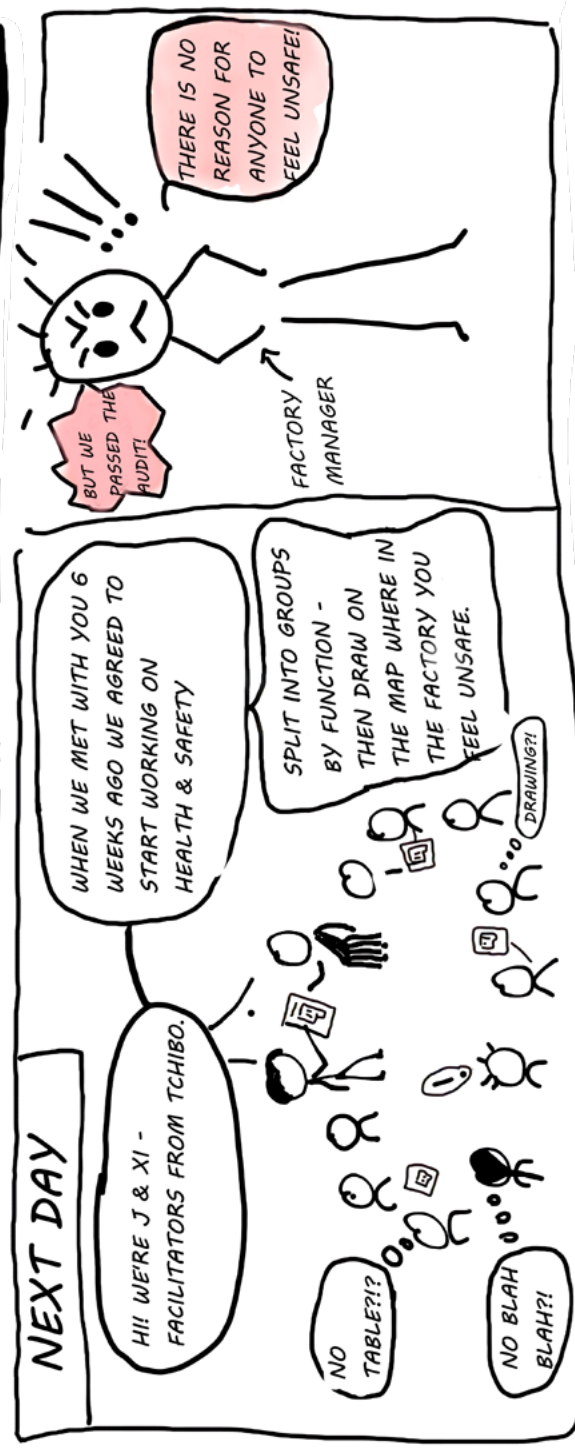 NEXT DAY
HI! WE'RE J & XI -
FACILITATORS FROM TCHIBO.
WHEN WE MET WITH YOU 6
WEEKS AGO WE AGREED TO
START WORKING ON
HEALTH & SAFETY
SPLIT INTO GROUPS
BY FUNCTION -
THEN DRAW ON
THE MAP WHERE IN
THE FACTORY YOU
FEEL UNSAFE.
NO
TABLE?!?
NO BLAH
BLAH?!
DRAWING?!
BUT WE
PASSED THE
AUDIT!
!!!
THERE IS NO
REASON FOR
ANYONE TO
FEEL UNSAFE!
FACTORY
MANAGER